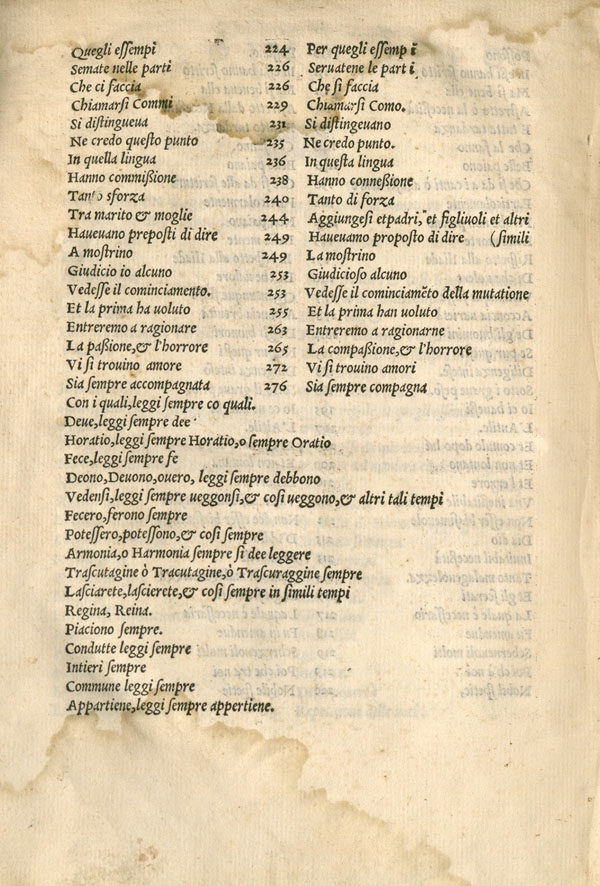 Quegli eſſempi 224 Per quegli eſſemp i
Semate nelle parti 226 Seruatene le part i
Che ci faccia 226 Che ſi faccia
Chiamarſi Commi 229 Chiamarſi Como.
Si diſtingueua 231 Si diſtingeuano
Ne credo queſto punto 235 Ne credo punto.
In quella lingua 236 In queſta lingua
Hanno commißione 238 Hanno conneßione
Tanto sforza 240 Tanto di forza
Tra marito & moglie 244 Aggiungeſi et padri, et figliuoli et altri
Haueuano prepoſti di dire 249 Haueuamo propoſto di dire (ſimili
A moſtrino 249 La moſtrino
Giudicio io alcuno 253 Giudicioſo alcuno
Vedeſſe il cominciamento. 253 Vedeſſe il cominciamẽto della mutatione
Et la prima ha uoluto 255 Et la prima han uoluto
Entreremo a ragionare 263 Entreremo a ragionarne
La paßione,& l'horrore 265 La compaßione,& l'horrore
Vi ſi trouino amore 272 Vi ſi trouino amori
Sia ſempre accompagnata 276 Sia ſempre compagna
Con i quali,leggi ſempre co quali.
Deue,leggi ſempre dee
Horatio,leggi ſempre Horatio,o ſempre Oratio
Fece,leggi ſempre fe
Deono,Deuono,ouero, leggi ſempre debbono
Vedenſi,leggi ſempre ueggonſi,& coſi ueggono,& altri tali tempi
Fecero,ferono ſempre
Poteſſero,poteſſono,& coſi ſempre
Armonia,o Harmonia ſempre ſi dee leggere
Traſcutagine ò Tracutagine,ò Traſcuraggine ſempre
Laſciarete,laſcierete,& coſi ſempre in ſimili tempi
Regina, Reina.
Piaciono ſempre.
Condutte leggi ſempre
Intieri ſempre
Commune leggi ſempre
Appartiene,leggi ſempre appertiene.